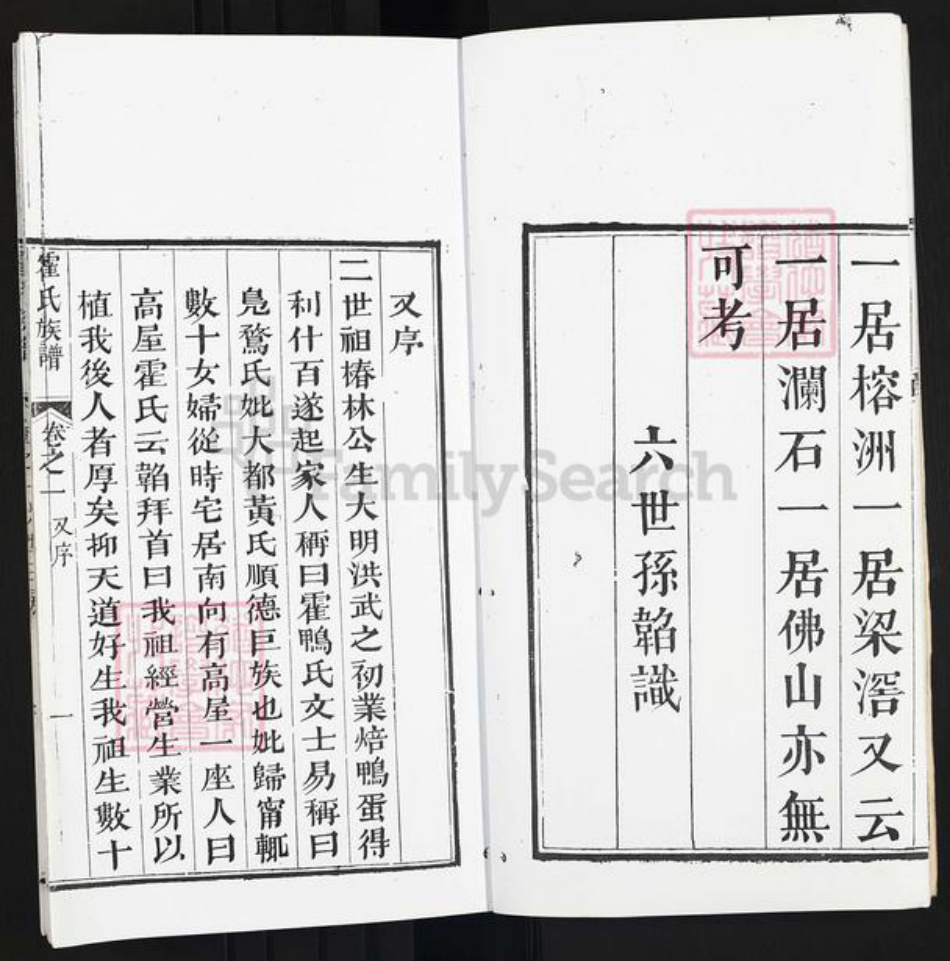 一居榕洲一居梁滘又云
一居瀾石一居佛山亦無
可考
六世孫韜識
又序
二世祖椿林公生大明洪武之初業焙鴨蛋得
利什百遂起家人稱曰霍鴨氏文士易稱曰
鳧鶩氏妣大都黃氏順德巨族也妣歸甯輒
數十女婦從時宅居南向有高屋一座人曰
高屋霍氏云韜拜首曰我祖經營生業所以
植我後人者厚矣抑天道好生我祖生數十
霍氏族譜
卷之一
又序
一
FamilySearch